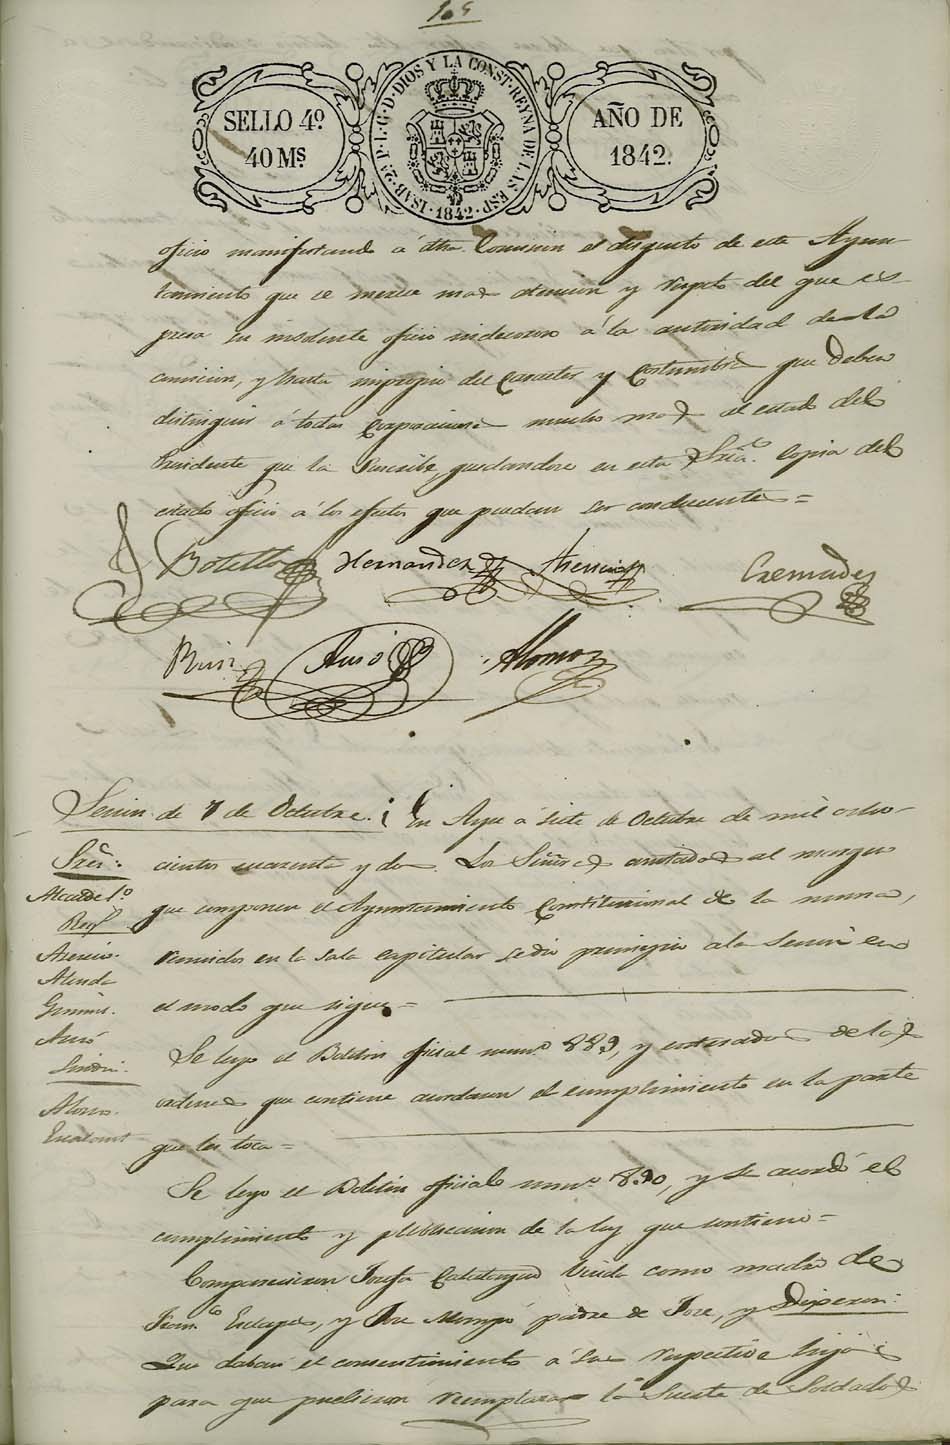 SELLO 4º.
40 Ms
ISAB. 2ª P. L. G. D. DIOS Y LA CONST. REYNA DE LAS ESP.
1842
AÑO DE
1842.
oficio manifestando á dha. Comision el disgusto de este Ayun-
tamiento que se merece mas atencion y respeto del que es-
presa su insolente oficio indecoroso á la autoridad de la
comision, y hasta impropio del caracter y costumbres que deben
distinguir á todas corporaciones mucho mas el estado del
Presidente que la suscribe, quedandose en esta Sria. copia del
citado oficio á los efectos que puedan ser conducentes =
Botella Hernandez Asencio Cremades
Ruiz Alonso
Sesion de 7 de Octubre.
En Aspe a siete de Octubre de mil ocho-
Sres.
cientos cuarenta y dos. Los Señores anotados al margen
Alcalde 1º
que componen el Ayuntamiento Constitucional de la misma,
Regs.
Asencio.
reunidos en la sala capitular se dio principio a la sesion en
el modo que sigue =
Se leyo el Boletin oficial num.º 889, y enterados de las
ordenes que contiene acordaron el cumplimiento en la parte
Alonso.
que les toca =
Se leyo el Boletin oficial num.º 890, y se acordó el
cumplimiento y publicacion de la ley que contiene =
Comparecieron Josefa viuda como madre de
Fran.co y Jose padre de Jose, y Dijeron:
Que daban el consentimiento á sus respectivos hijos
para que pudiesen remplazar la suerte de Soldados